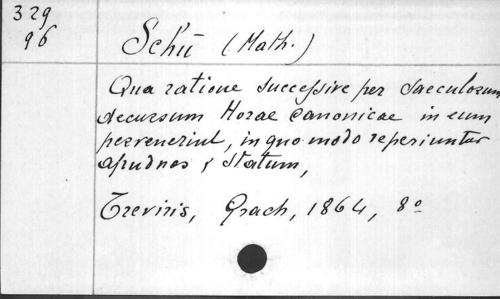 329
96
Schü (Math.)
Qua ratione successive per saeculorum
decursum Horae canonicae in eum
pervenerint, in quo modo reperiuntur
apud nos, statum,
Treviris, Grach, 1864, 8º